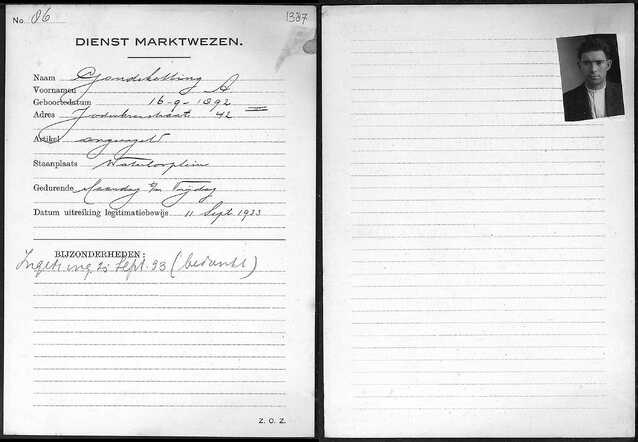 No 86 1337
DIENST MARKTWEZEN.
Naam Gandelketting
Voornamen A
Geboortedatum 16-9-1892
Adres Jodenbreestraat 42
Artikel ongeregeld
Staanplaats Waterlooplein
Gedurende Maandag t/m Vrijdag
Datum uitreiking legitimatiebewijs 11 Sept 1933
BIJZONDERHEDEN:
Sept. 33 (bedankt)
Z. O. Z.